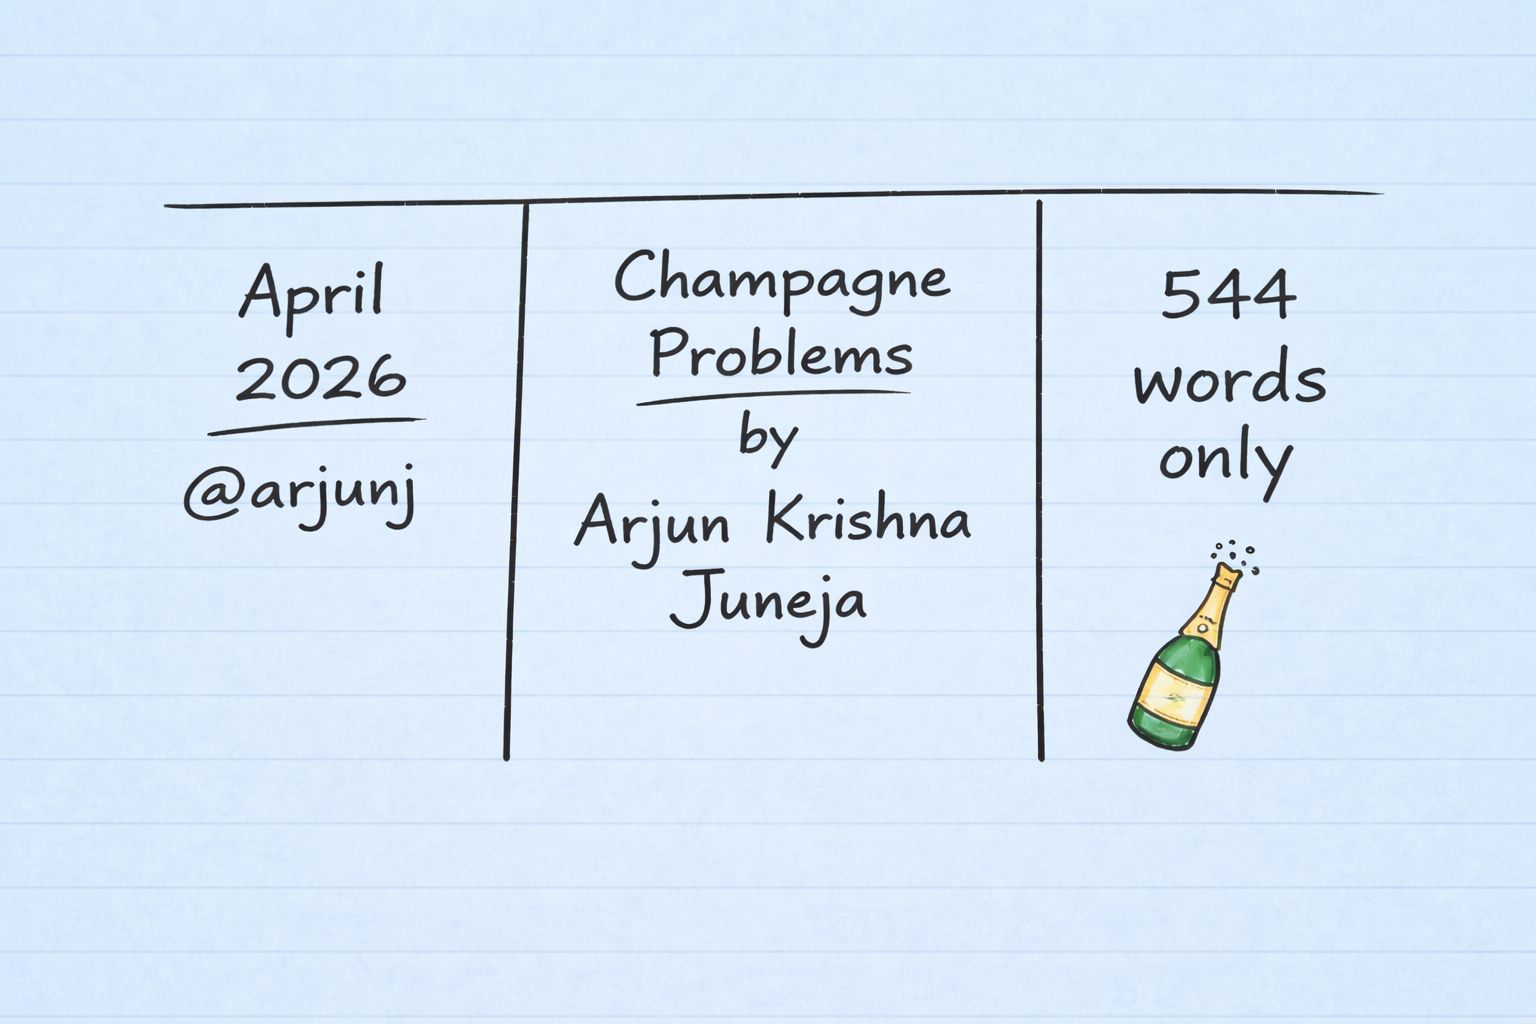 April
2026
@arjunj
Champagne
Problems
by
Arjun Krishna
Juneja
544
words
only